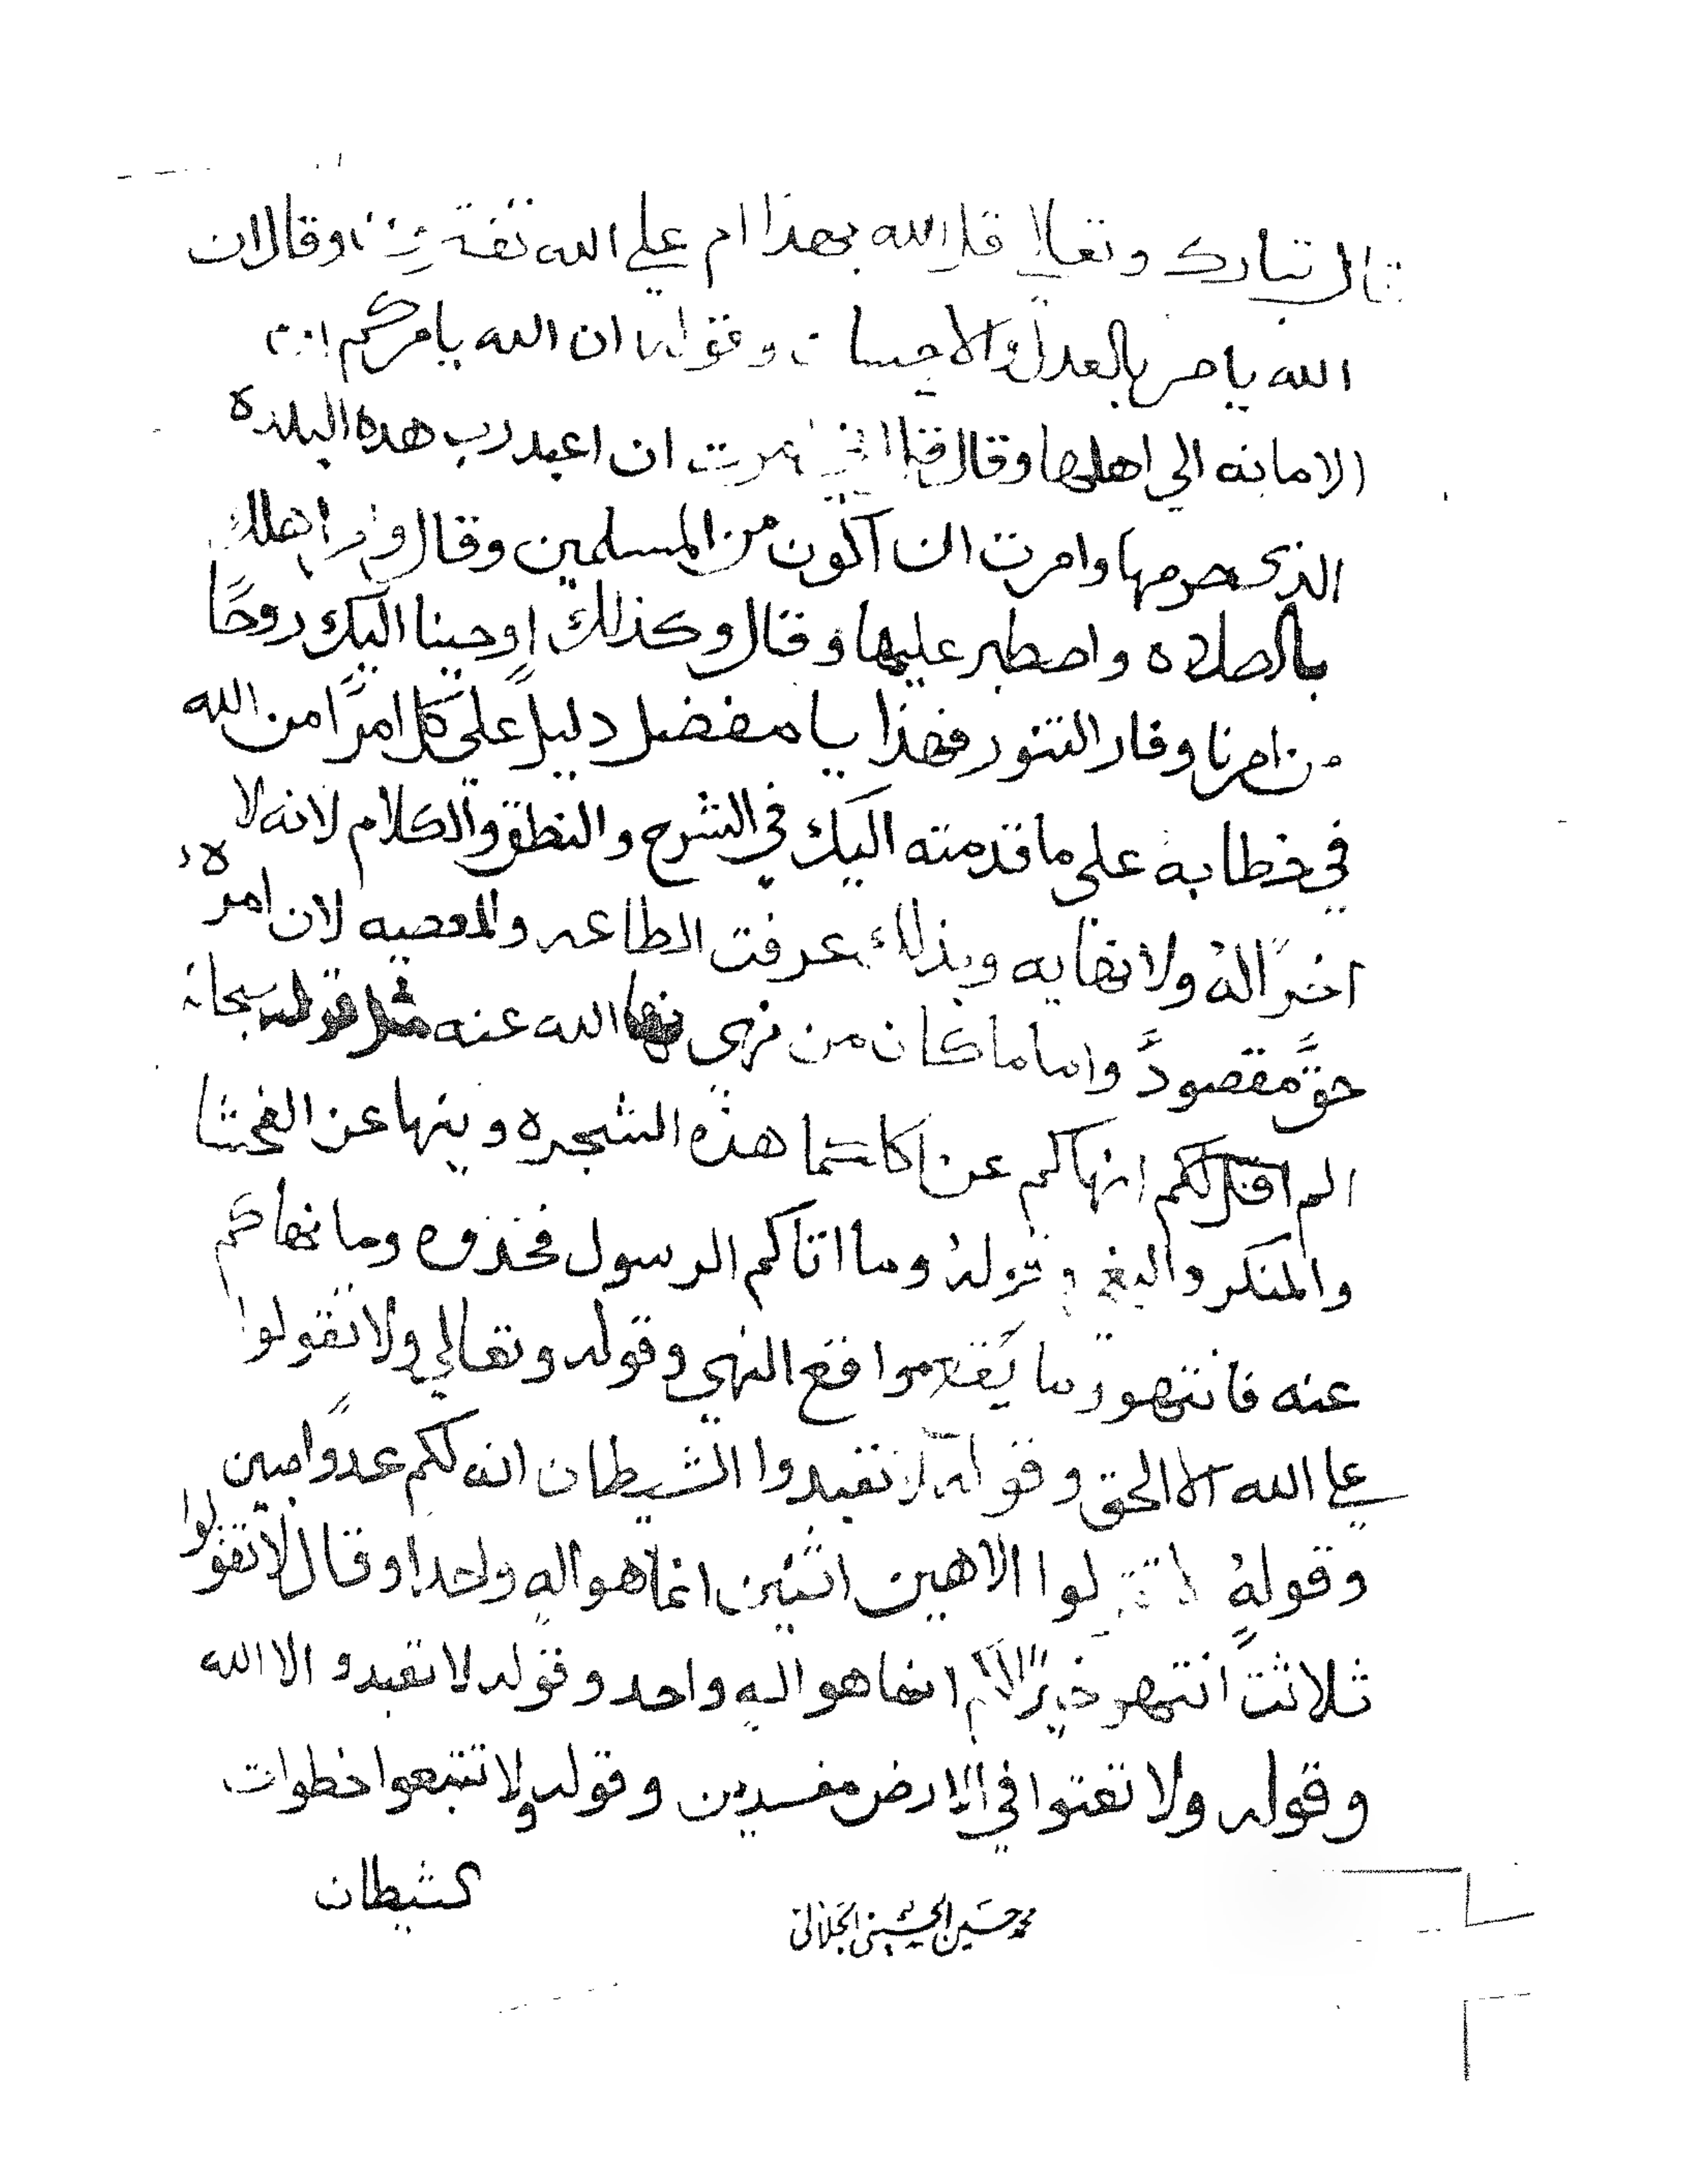 قال تبارك وتعالا قل الله بهذا ام علي الله تفترون وقال ان
الله يامر بالعدل والاحسان وقوله ان الله يامركم
الامانه الي اهلها وقال انما امرت ان اعبد رب هده البلده
الذى حرمها وامرت ان اكون من المسلمين وقال وامر اهلك
بالصلاه واصطبر عليها وقال وكذلك اوحينا اليك روحًا
من امرنا وفار التنور فهذا يا مفضل دليلً علي كل امرًا من الله
في خطابه على ما قدمته اليك في الشرح والنطق والكلام لانه لا
اخرً الهُ ولا نهايه وبذلك عرفت الطاعه والمعصيه لان امره
حقً مقصودً واما ما كان من نهى الله عنه مثل قوله سبحانه
الم اقل لكم انهاكم عن هذه الشجره وينها عن الفحشا
والمنكر والبغي وقولهُ وما اتاكم الرسول فخذوه وما نهاكم
عنه فانتهو وما يقدموا فع النهي وقوله وتعالي ولا تقولوا
علي الله الا الحق وقوله لا تعبدوا الشيطان انه لكم عدوًا مبين
وقولهُ لا تقولوا الاهين اثنين انما هو اله واحدا وقال لا تقولوا
ثلاثتً انتهو خيرً لكم انما هو اله واحد وقوله لا تعبدو الا الله
وقوله ولا تعتوا في الارض مفسدين وقوله ولا تتبعوا خطوات
الشيطان
محمد حسين الحسيني الجلالي